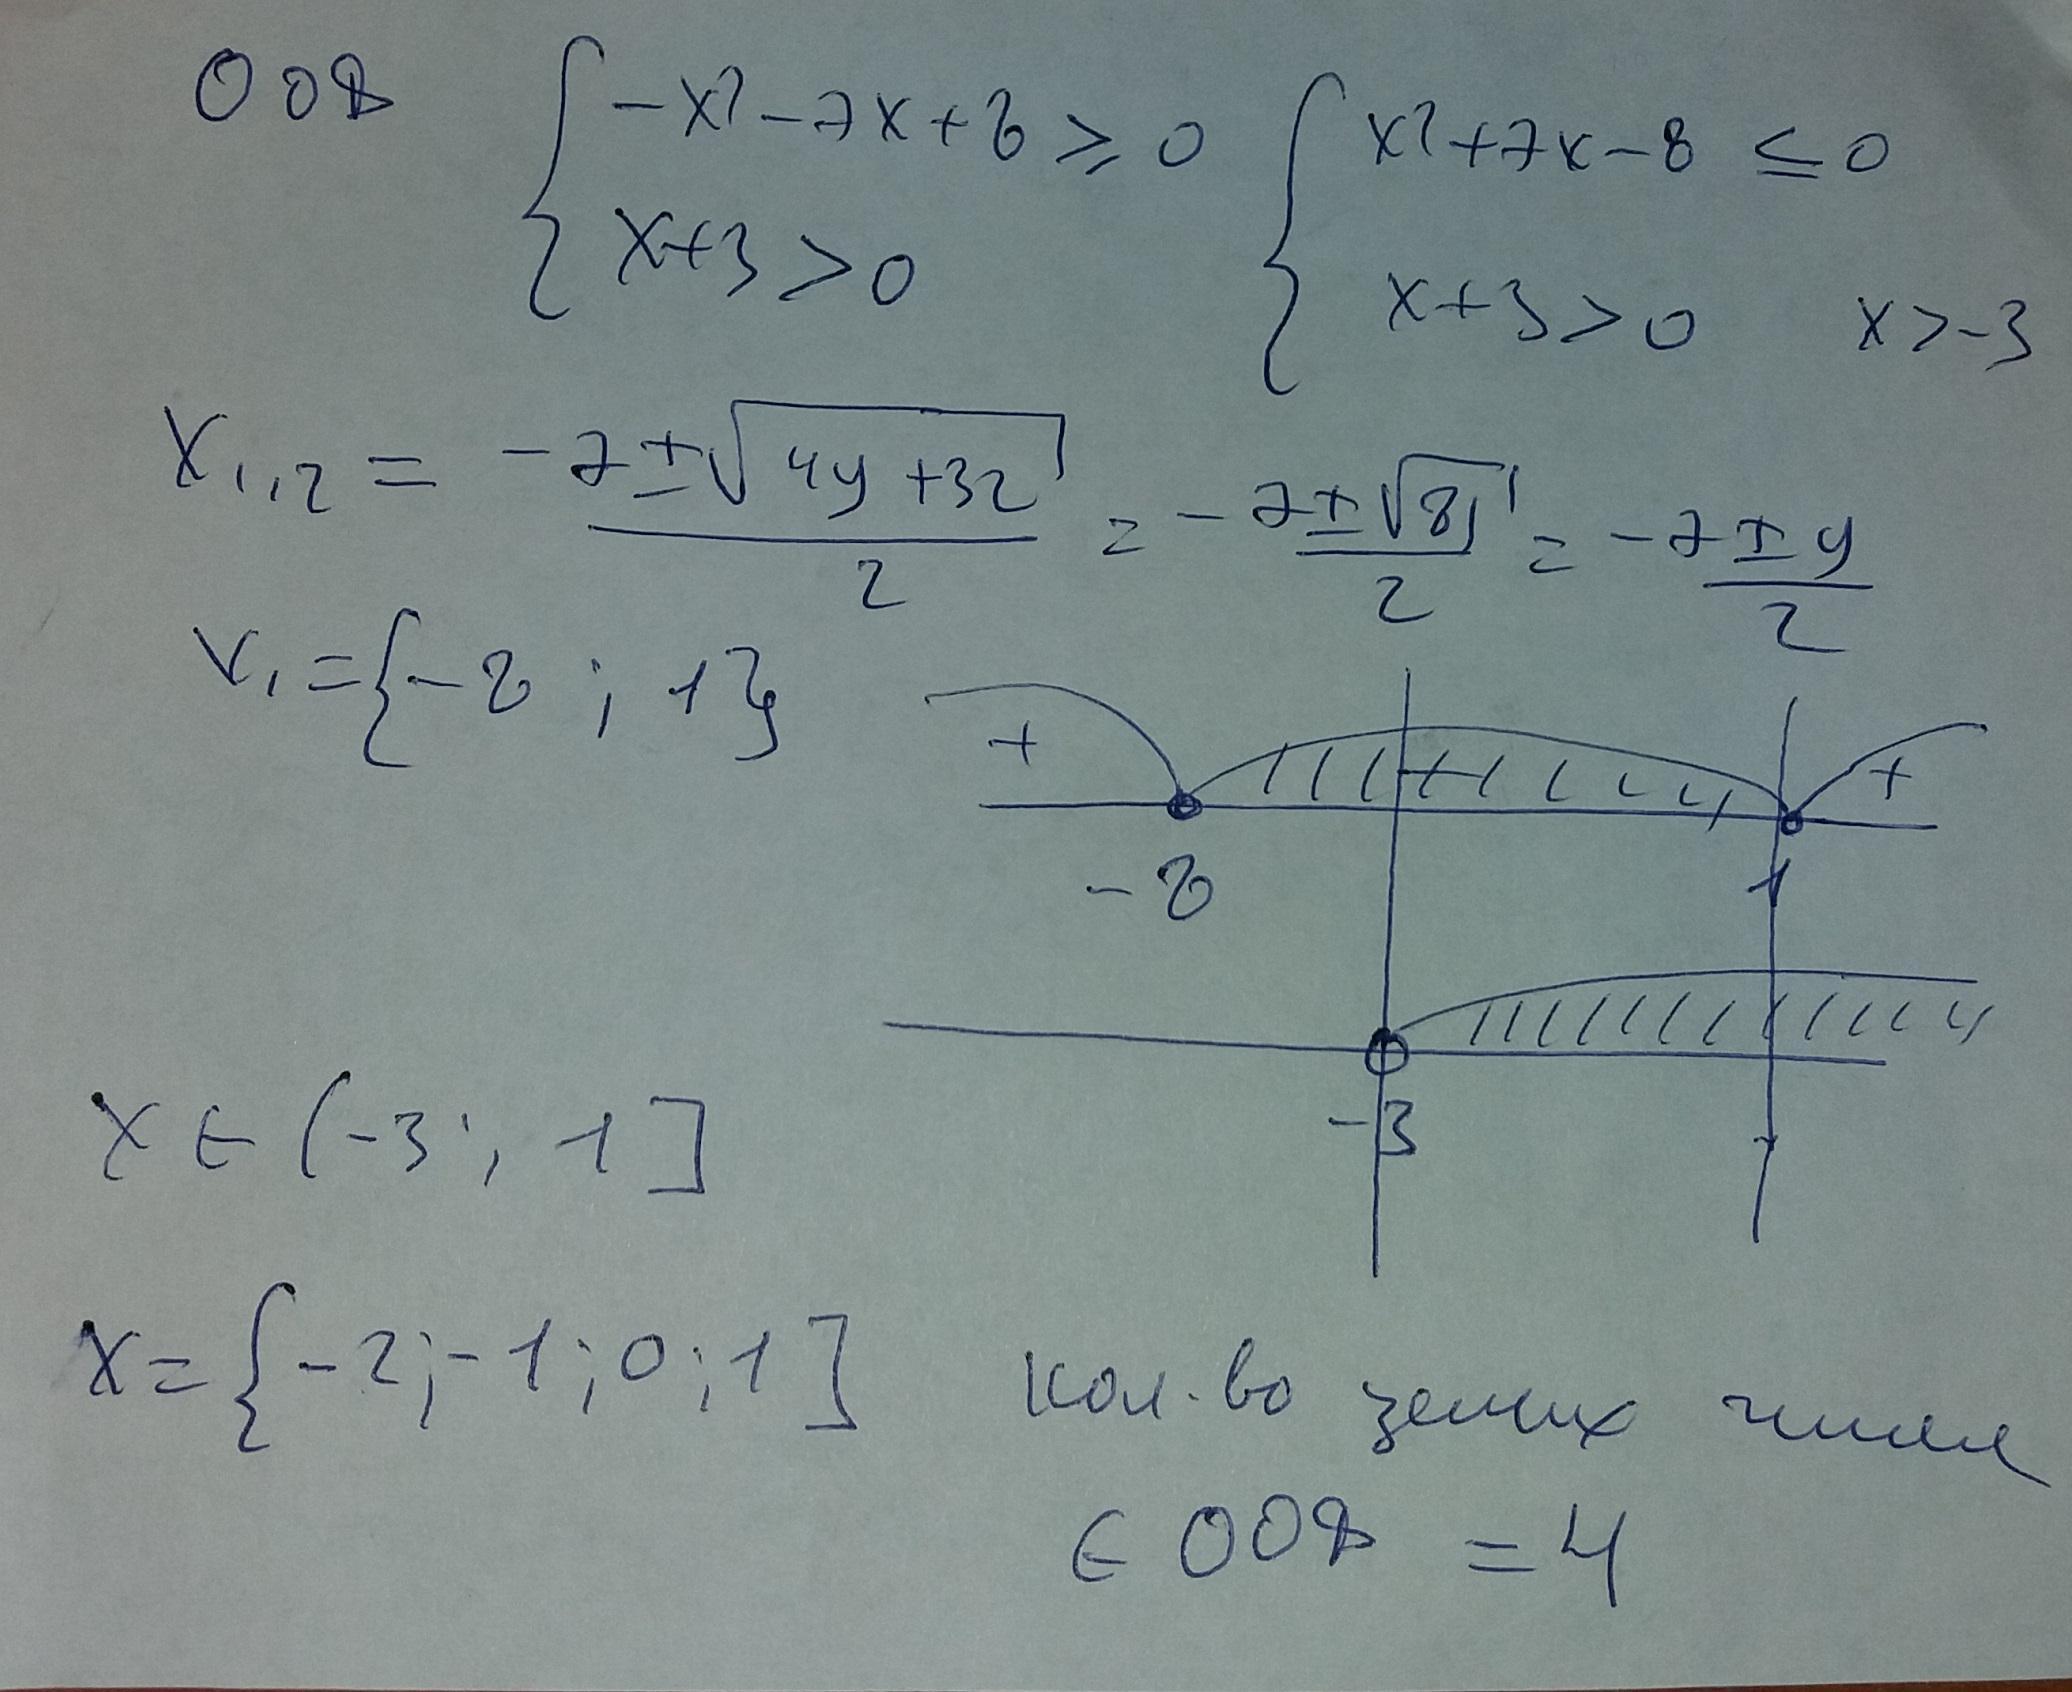 ООФ { -x² - 7x + 8 ≥ 0 { x² + 7x - 8 ≤ 0
x+3 > 0 x+3 > 0 x > -3
x₁,₂ = (-7 ± √(49 + 32)) / 2 = (-7 ± √81) / 2 = (-7 ± 9) / 2
x₁ = {-8 ; 1}
+ +
-8 1
-3
x ∈ (-3 ; 1]
x = {-2; -1; 0; 1]
кол-во целых чисел
∈ ООФ = 4